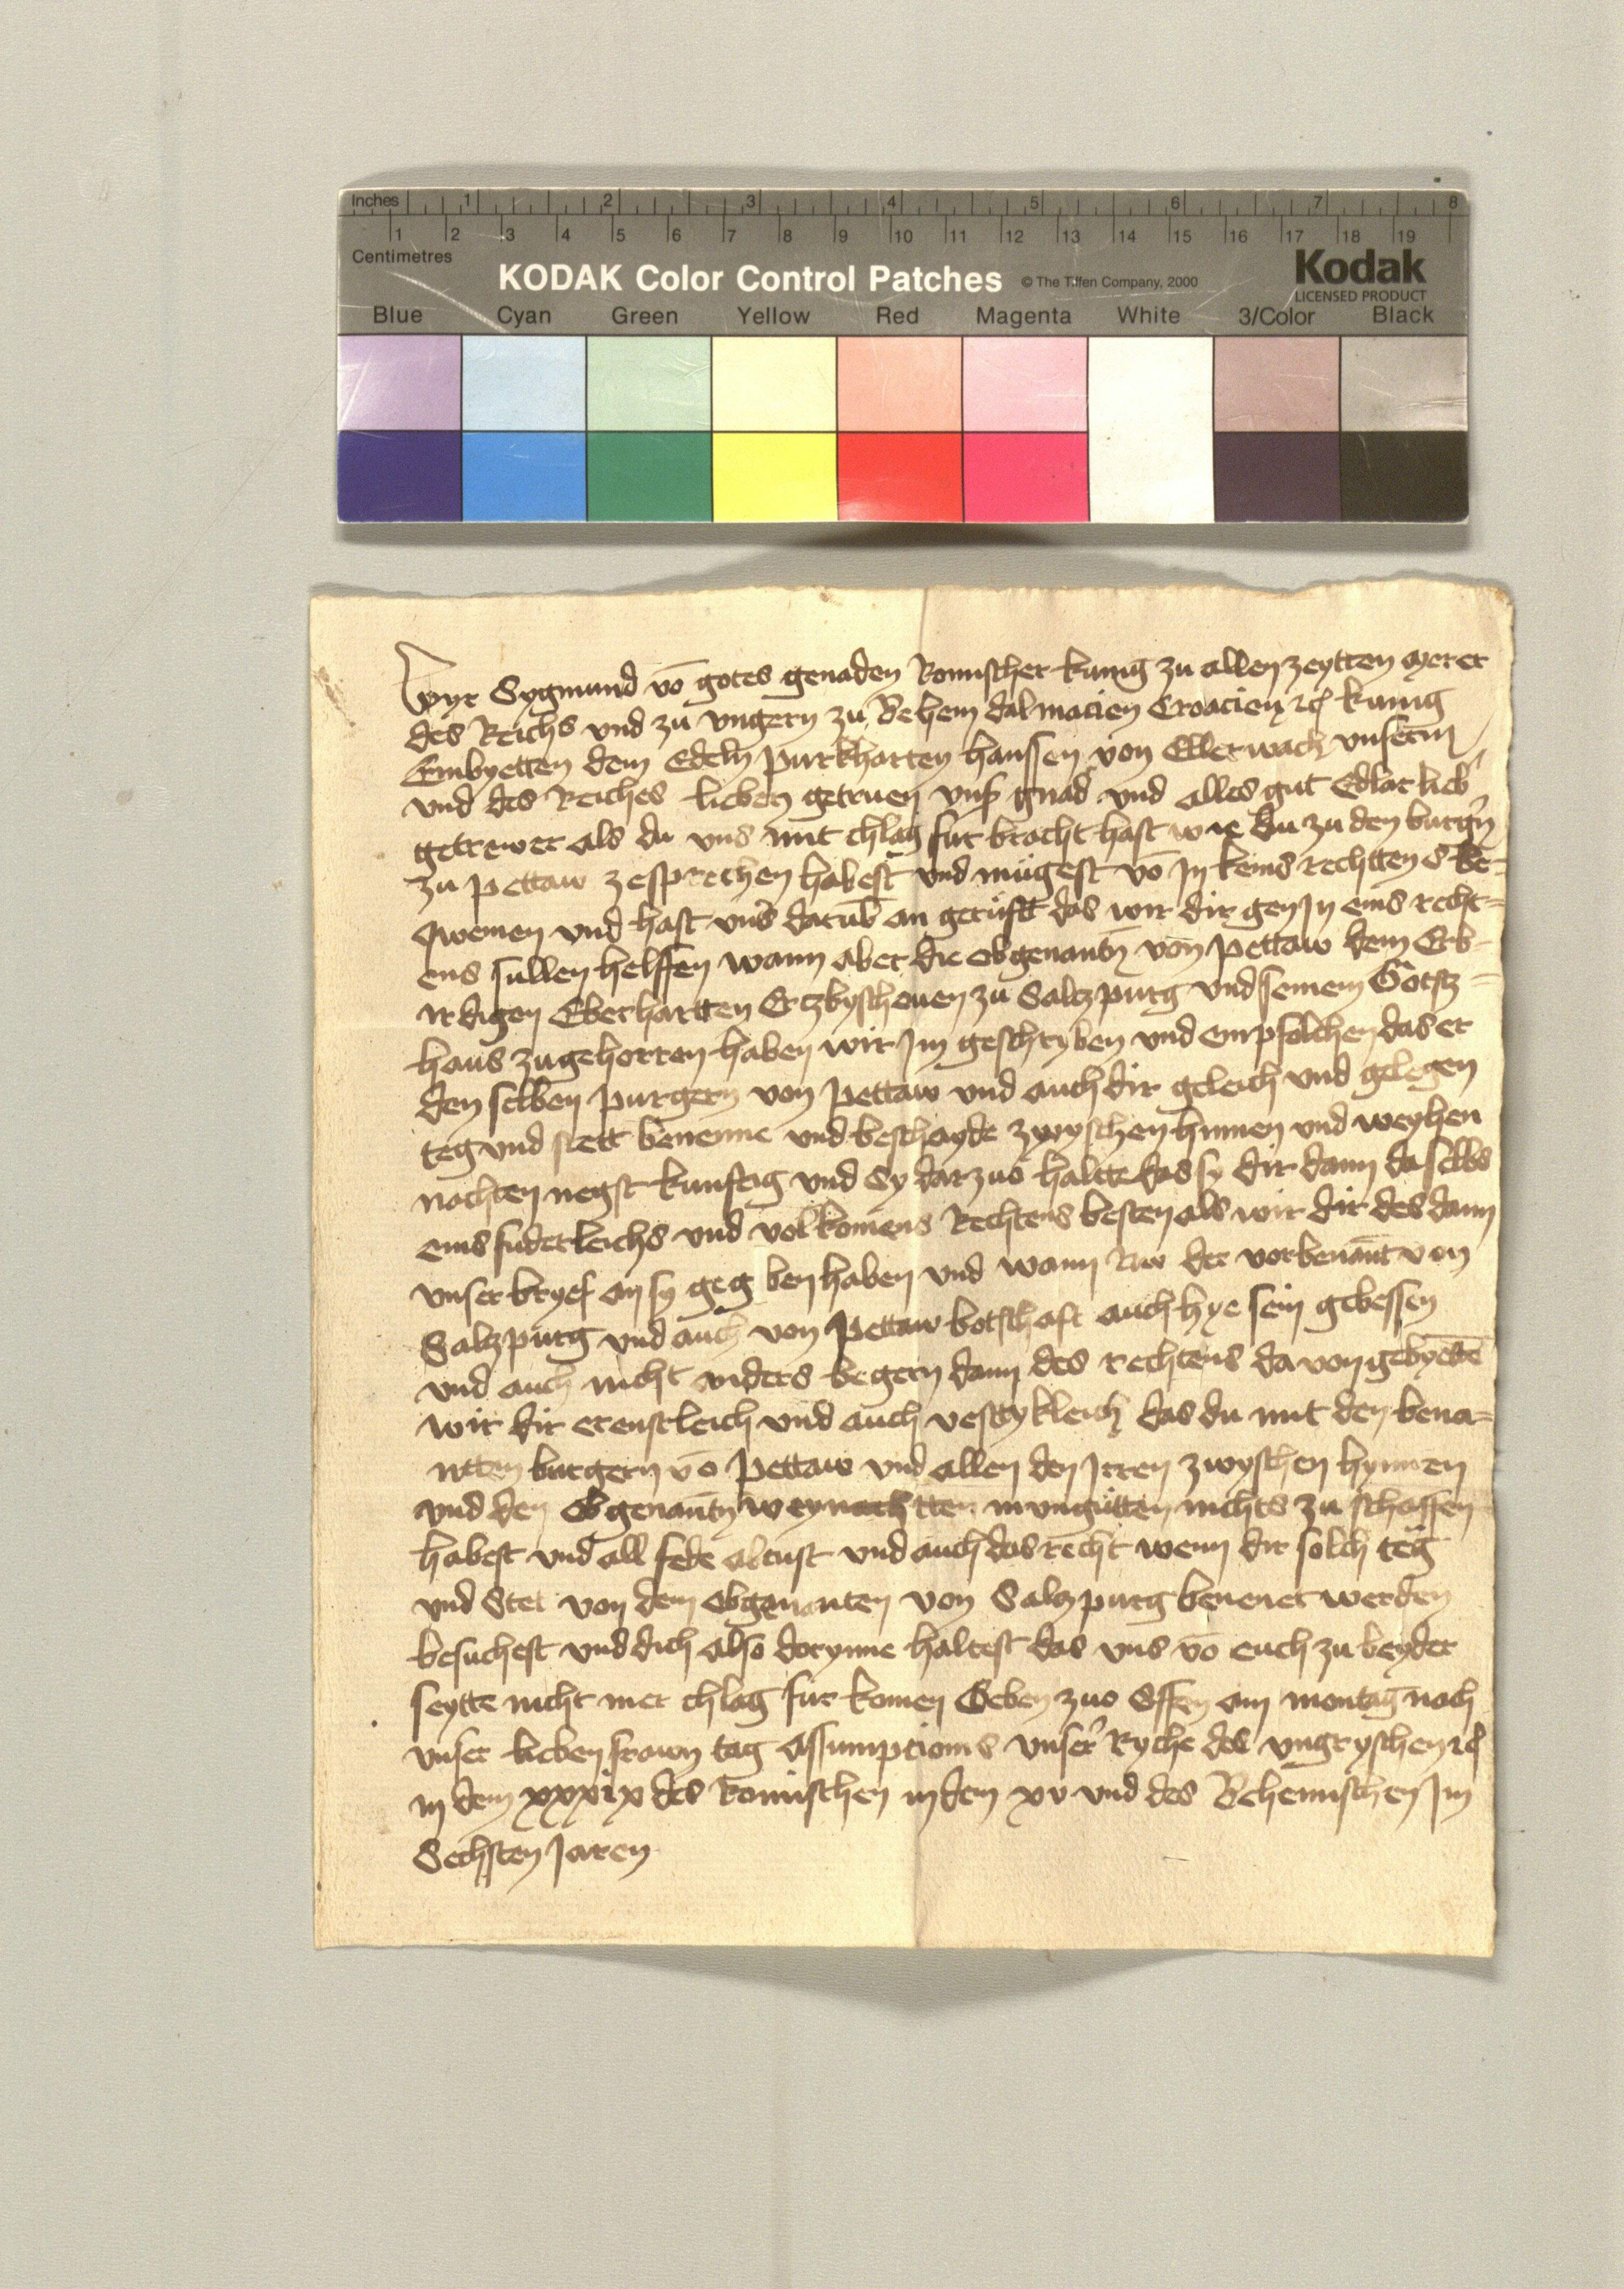 Inches 1 2 3 4 5 6 7 8
1 2 3 4 5 6 7 8 9 10 11 12 13 14 15 16 17 18 19
Centimetres
KODAK Color Control Patches © The Tiffen Company, 2000 Kodak
LICENSED PRODUCT
Blue Cyan Green Yellow Red Magenta White 3/Color Black
Wyr Sygmund vō gotes genaden Romischer kunig zu allen zeytten merer
des Reichs vnd zu vngern zu Behem dalmacien Croacien ꝛc kunig
Embyetten dem Edeln purkharten hanssen von Ellerwach vnserm
vnd des Reiches lieben getruen vnß gnad vnd alles gut Edlar lieb
getrewer als du vns mit chlag fur bracht hast wie du zu den burgn̄
zu pettaw zesprechen habest vnd mügest vō Jn keins rechttens be-
qwemen vnd hast vns darūb an gerüfft das wir dir gen Jn eins recht-
ens sullen helffen wann aber die obgenantn̄ von pettaw dem Erb-
irdigen Eberhartten Ertzbyschouen zu Saltzpurg vnd seinem Gotsz-
haus zugehorren haben wir Jm geschryben vnd empfolchen das er
den selben purgern von pettaw vnd auch dir geleich vnd gelegen
teg vnd stett benenne vnd beschayde zwyschen hinnen vnd weyhen
nachten negst kunftig vnd Sy darzuo haltte das sy dir dann daselbs
eins furderleichs vnd volkomens Rechtens besten als wir dir des dann
vnser bryef an sy geg ben haben vnd wann nw der vorbenānt von
Salzpurg vnd auch von pettaw botschaft auch hye sein gebessen
vnd auch nicht anders begern dann des rechtens da von gebyettē
wir dir erenstleich vnd auch vestykleich das du mit den bena-
ntten burgern vō pettaw vnd allen den Jrren zwyschen hynnen
vnd den Obgenantn̄ weynachtten in vngütten nichts zu schaffen
habest vnd all fede abtust vnd auch das recht wenn dir solch teg
vnd Stet von dem obgenanten von Salzpurg benenet werden
besuchest vnd dich also dorynne haltest das vns vō euch zu beyder
seytte nicht mer chlag fur komen Geben zuo Offen am montag nach
vnser lieben frawn tag Assumpcionis vnser Ryche des vngryschen ꝛc
in dem xxxix des Romischen in dem xv vnd des Behemischen Jm
Sechsten Jaren